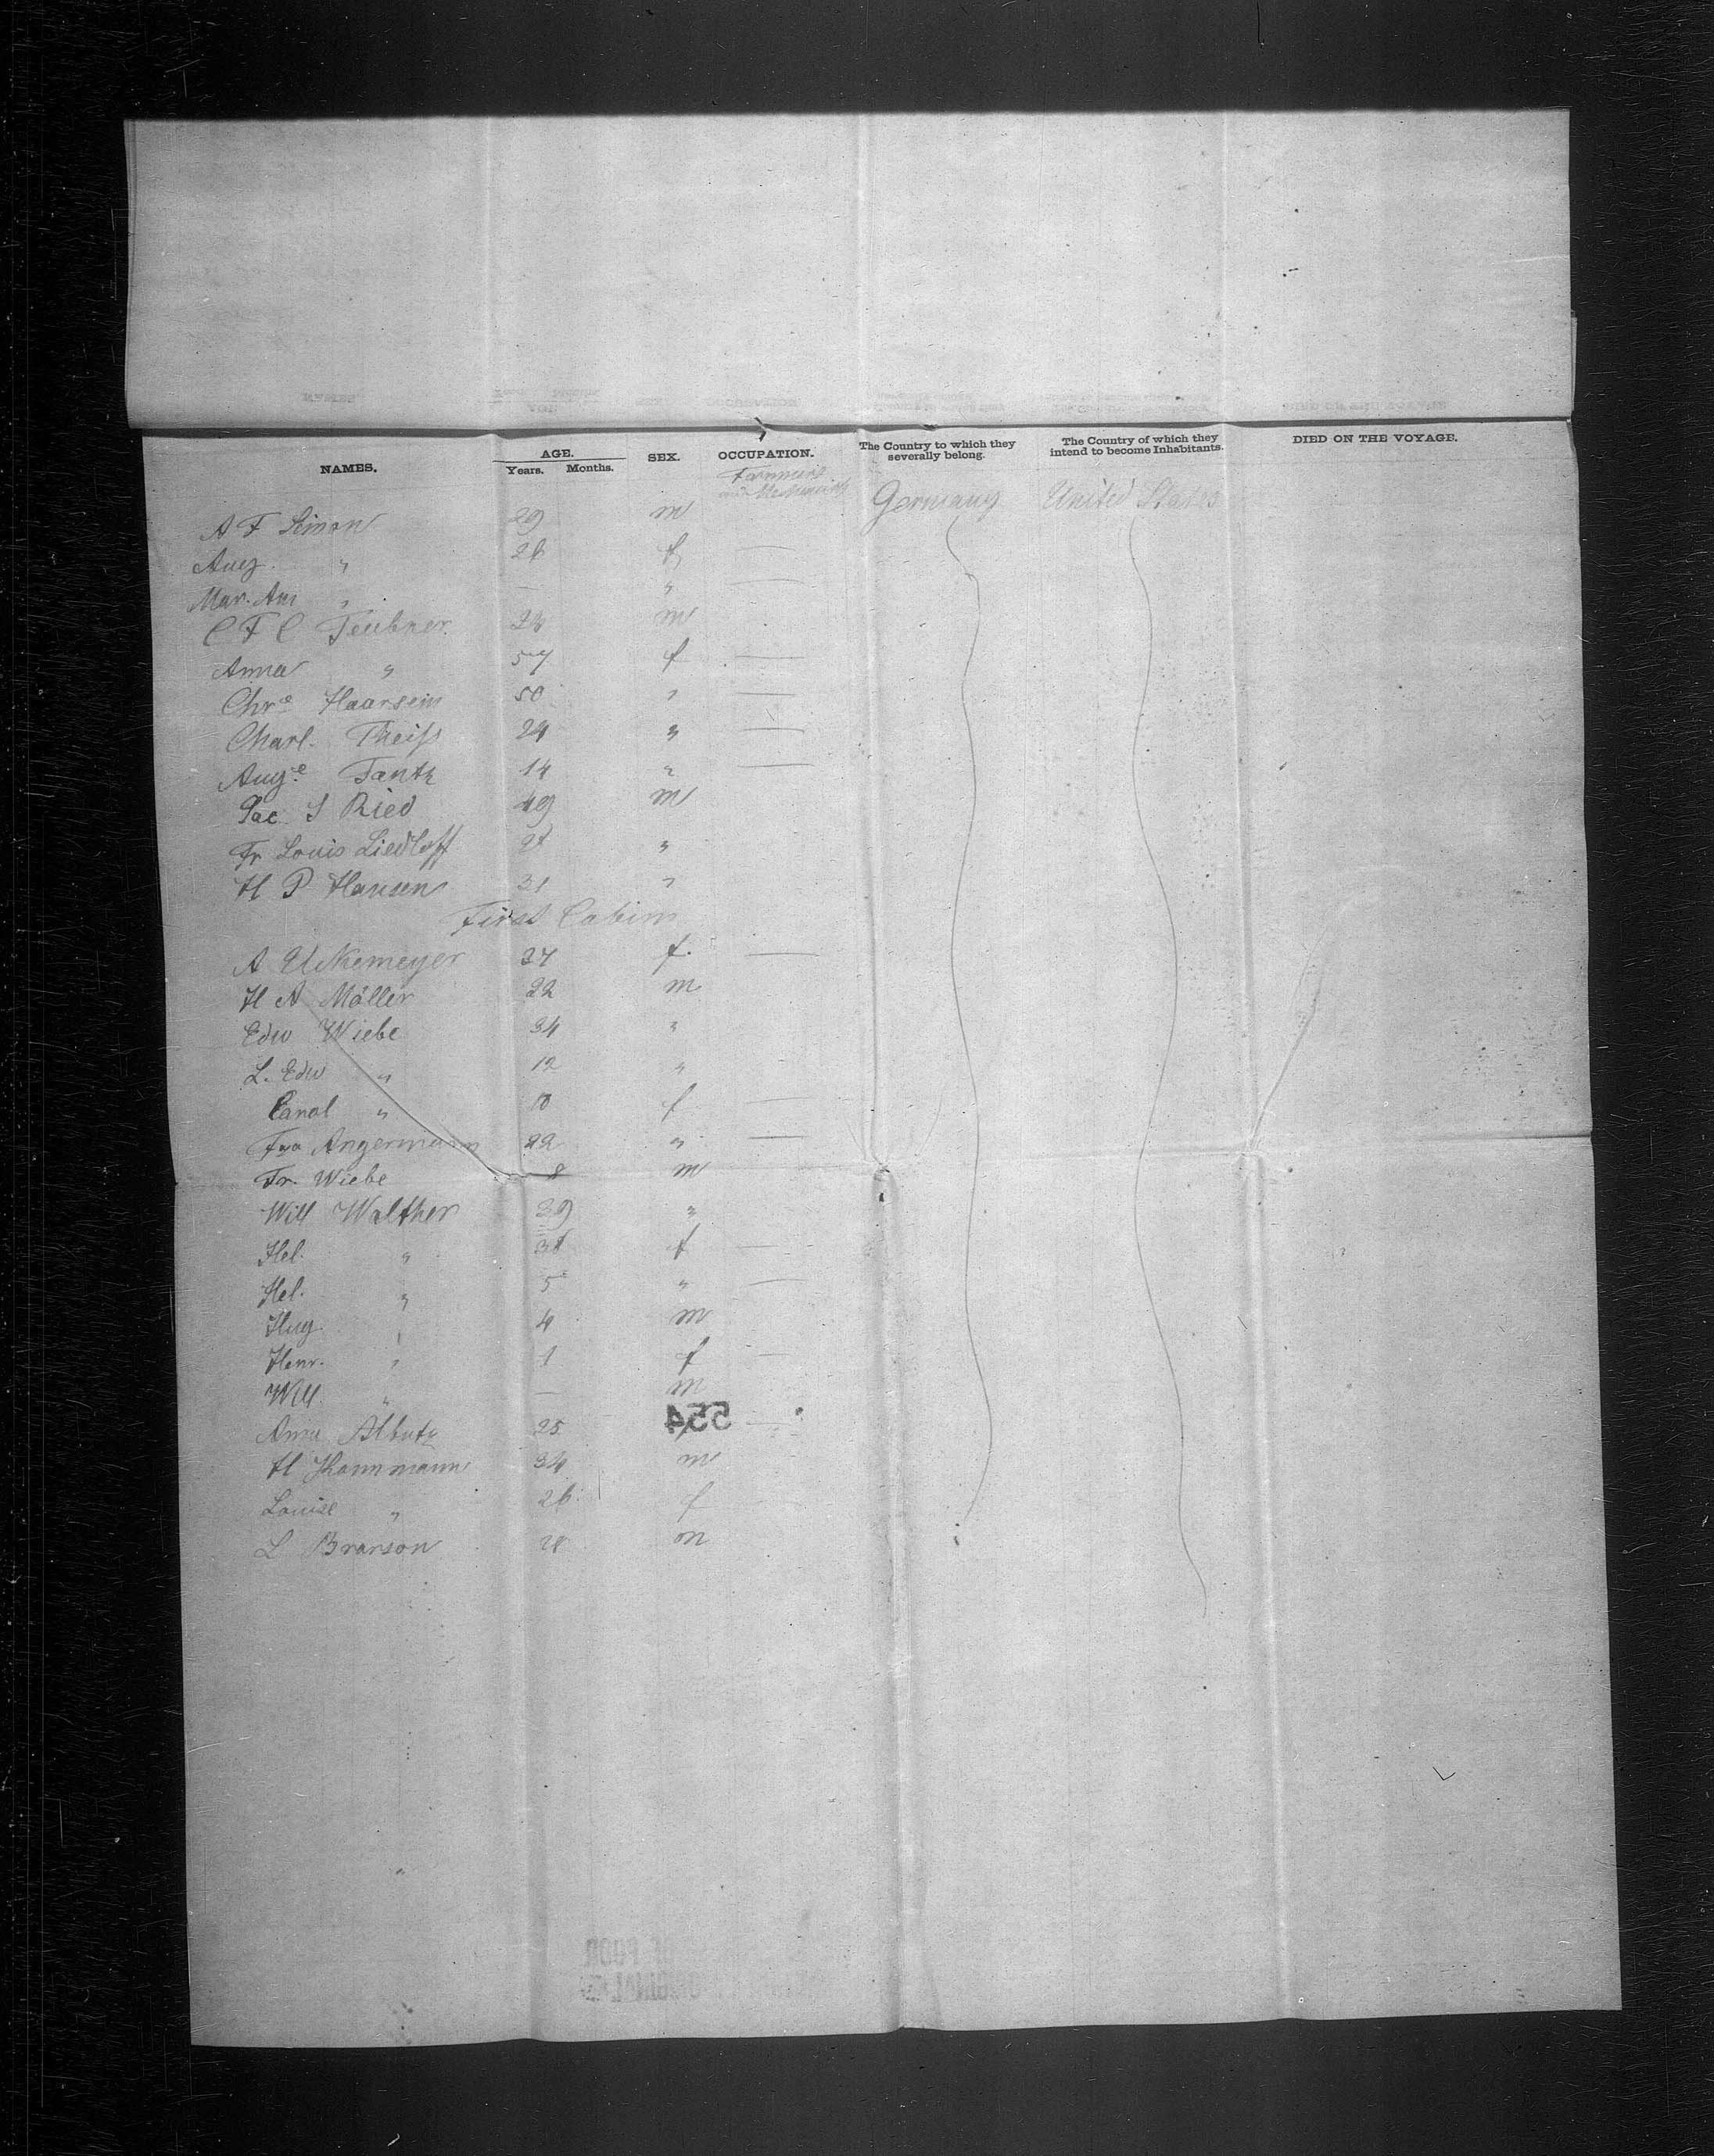 NAMES. AGE. Years. Months. SEX. OCCUPATION. The Country to which they severally belong. The Country of which they intend to become Inhabitants. DIED ON THE VOYAGE.
Farmers and Mechanics
A F Simon 29 m Germany United States
Aug. " 26 f —
Mar. An " — " —
C F C Teubner 24 m
Anna " 57 f —
Chre Haarsein 50 " —
Charl. Theiss 24 " —
Auge Tantz 14 " —
Jac. S Ried 49 m
Fr Louis Liedloff "
H P Hansen 31 "
First Cabin
A Uckemeyer 27 f. —
H A Möller 22 m
Edw Wiebe 34 "
L. Edw " 12 "
Carol " 10 f —
Angermann 22 " —
Fr. Wiebe 8 m
Will Walther 39 "
Hel. " f —
Hel. " 5 " —
Hug. " 4 m
Henr. " 1 f —
Will. " — m
554
Anna 25 —
H 34 m
Louise " 26 f
L Brarson 28 m